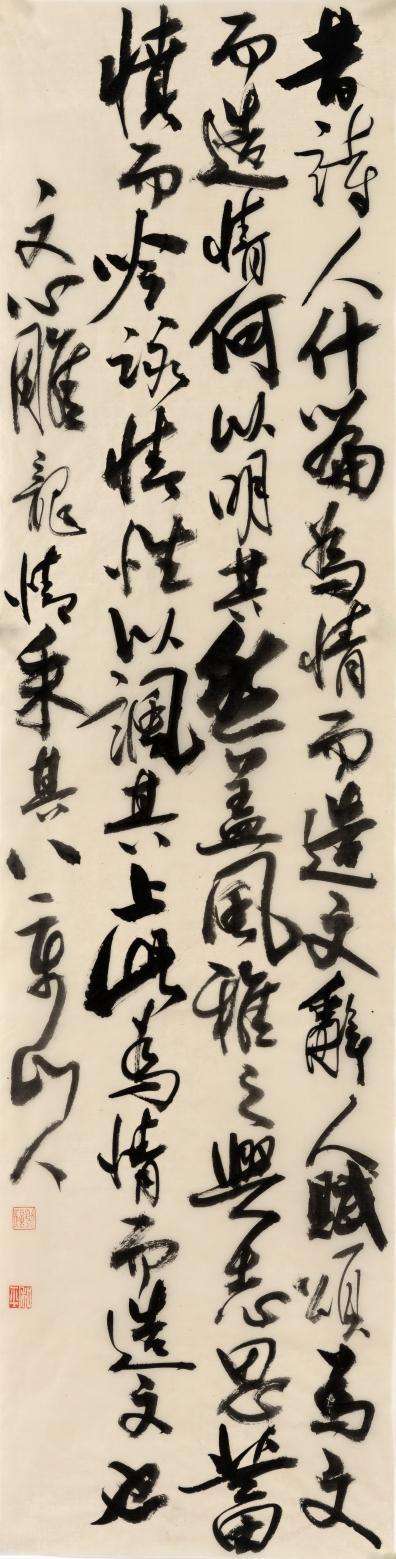 昔詩人什篇為情而造文辭人賦頌為文
而造情何以明其然盖風雅之興志思蓄
憤而吟詠情性以諷其上此為情而造文也
文心雕龍情采其八山人